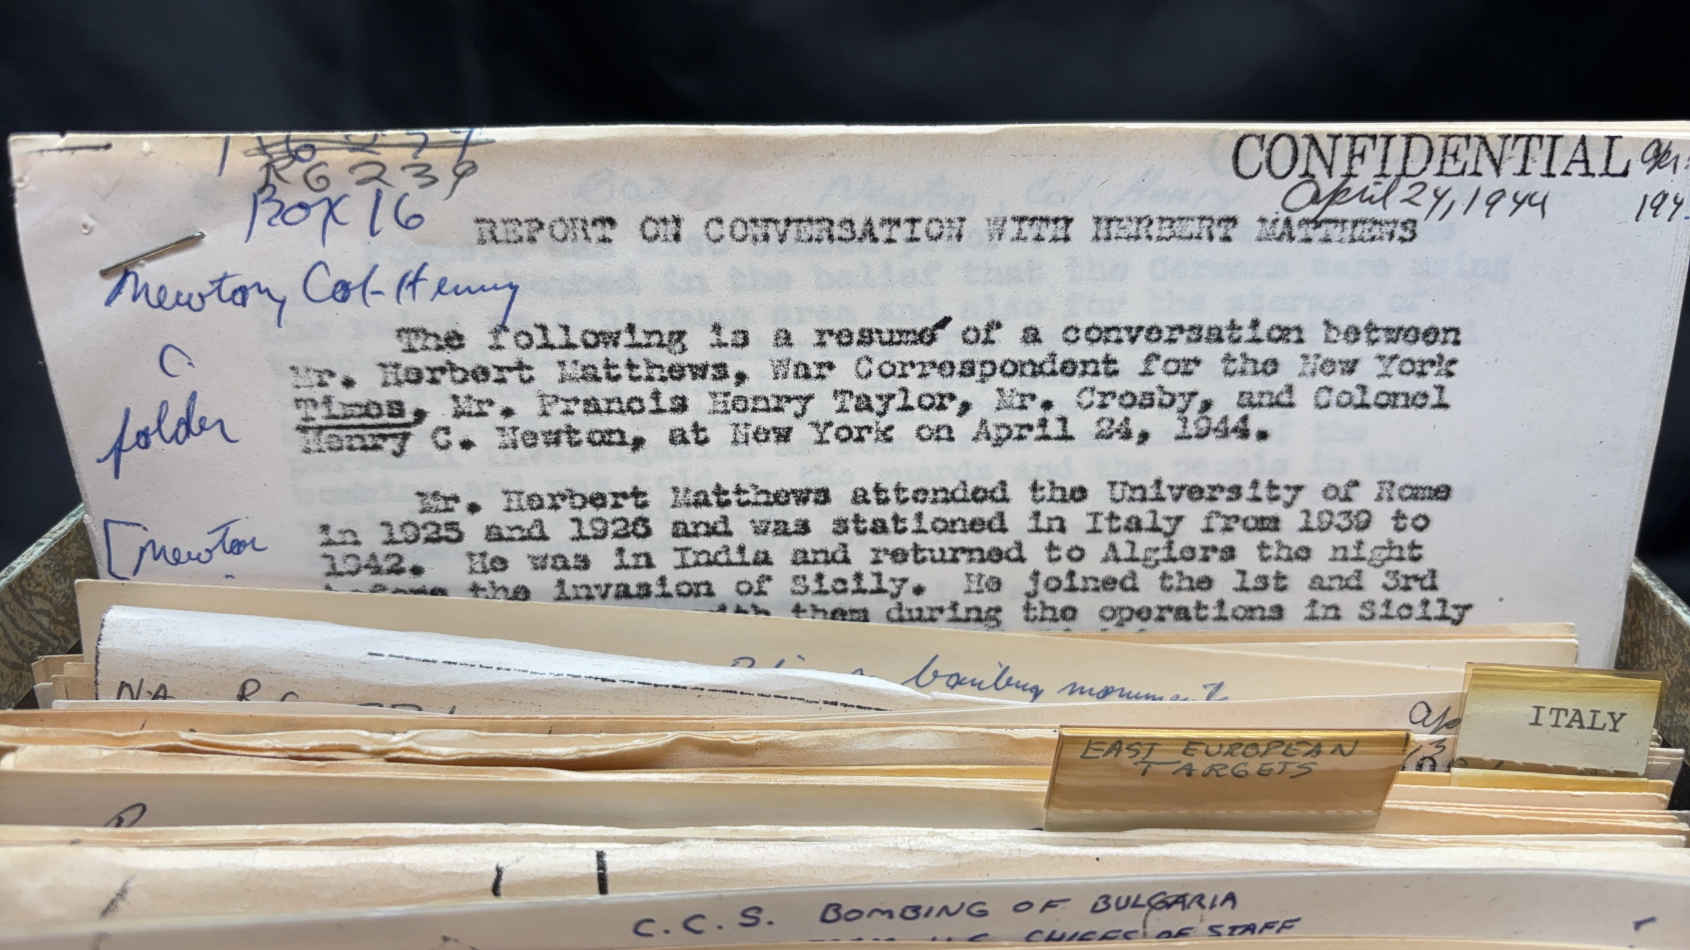 RG 239
CONFIDENTIAL
April 24, 1944
Box 16
REPORT ON CONVERSATION WITH HERBERT MATTHEWS
Newton, Col. Henry
C.
folder
[Newton
The following is a resumé of a conversation between
Mr. Herbert Matthews, War Correspondent for the New York
Times, Mr. Francis Henry Taylor, Mr. Crosby, and Colonel
Henry C. Newton, at New York on April 24, 1944.
Mr. Herbert Matthews attended the University of Rome
in 1925 and 1926 and was stationed in Italy from 1939 to
1942. He was in India and returned to Algiers the night
before the invasion of Sicily. He joined the 1st and 3rd
with them during the operations in Sicily
bombing monument
NA RG
ITALY
EAST EUROPEAN
TARGETS
C.C.S. BOMBING OF BULGARIA
CHIEFS OF STAFF